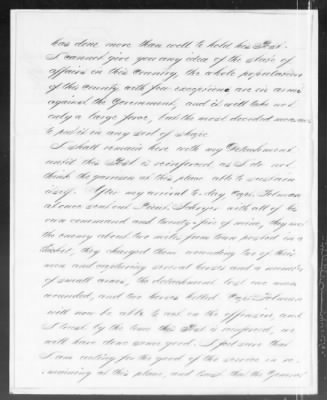 has done more than well to hold his Post.
I cannot give you any idea of the state of
affairs in this Country, the whole population
of this County with few exceptions are in arms
against the Government, and it will take not
only a large force, but the most decided measures
to put it in any sort of shape.
I shall remain here with my Detachment
until this Post is reinforced, as I do not
think the garrison at this place able to sustain
itself. After my arrival to day, Capt.
at once sent out Lieut. with all of his
own command and twenty-five of mine, they met
the enemy about two miles from town posted in a
thicket, they charged them wounding two of their
men and capturing several horses and a number
of small arms, the detachment lost one man
wounded, and two horses killed. Capt.
will now be able to act on the offensive, and
I trust by the time this Post is reinforced, we
will have done some good. I feel sure that
I am acting for the good of the service in re-
maining at this place, and trust that the General